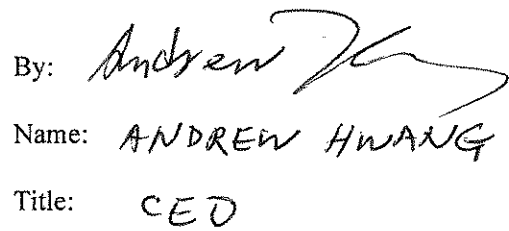 By: Andrew H
Name: ANDREW HWANG
Title: CEO